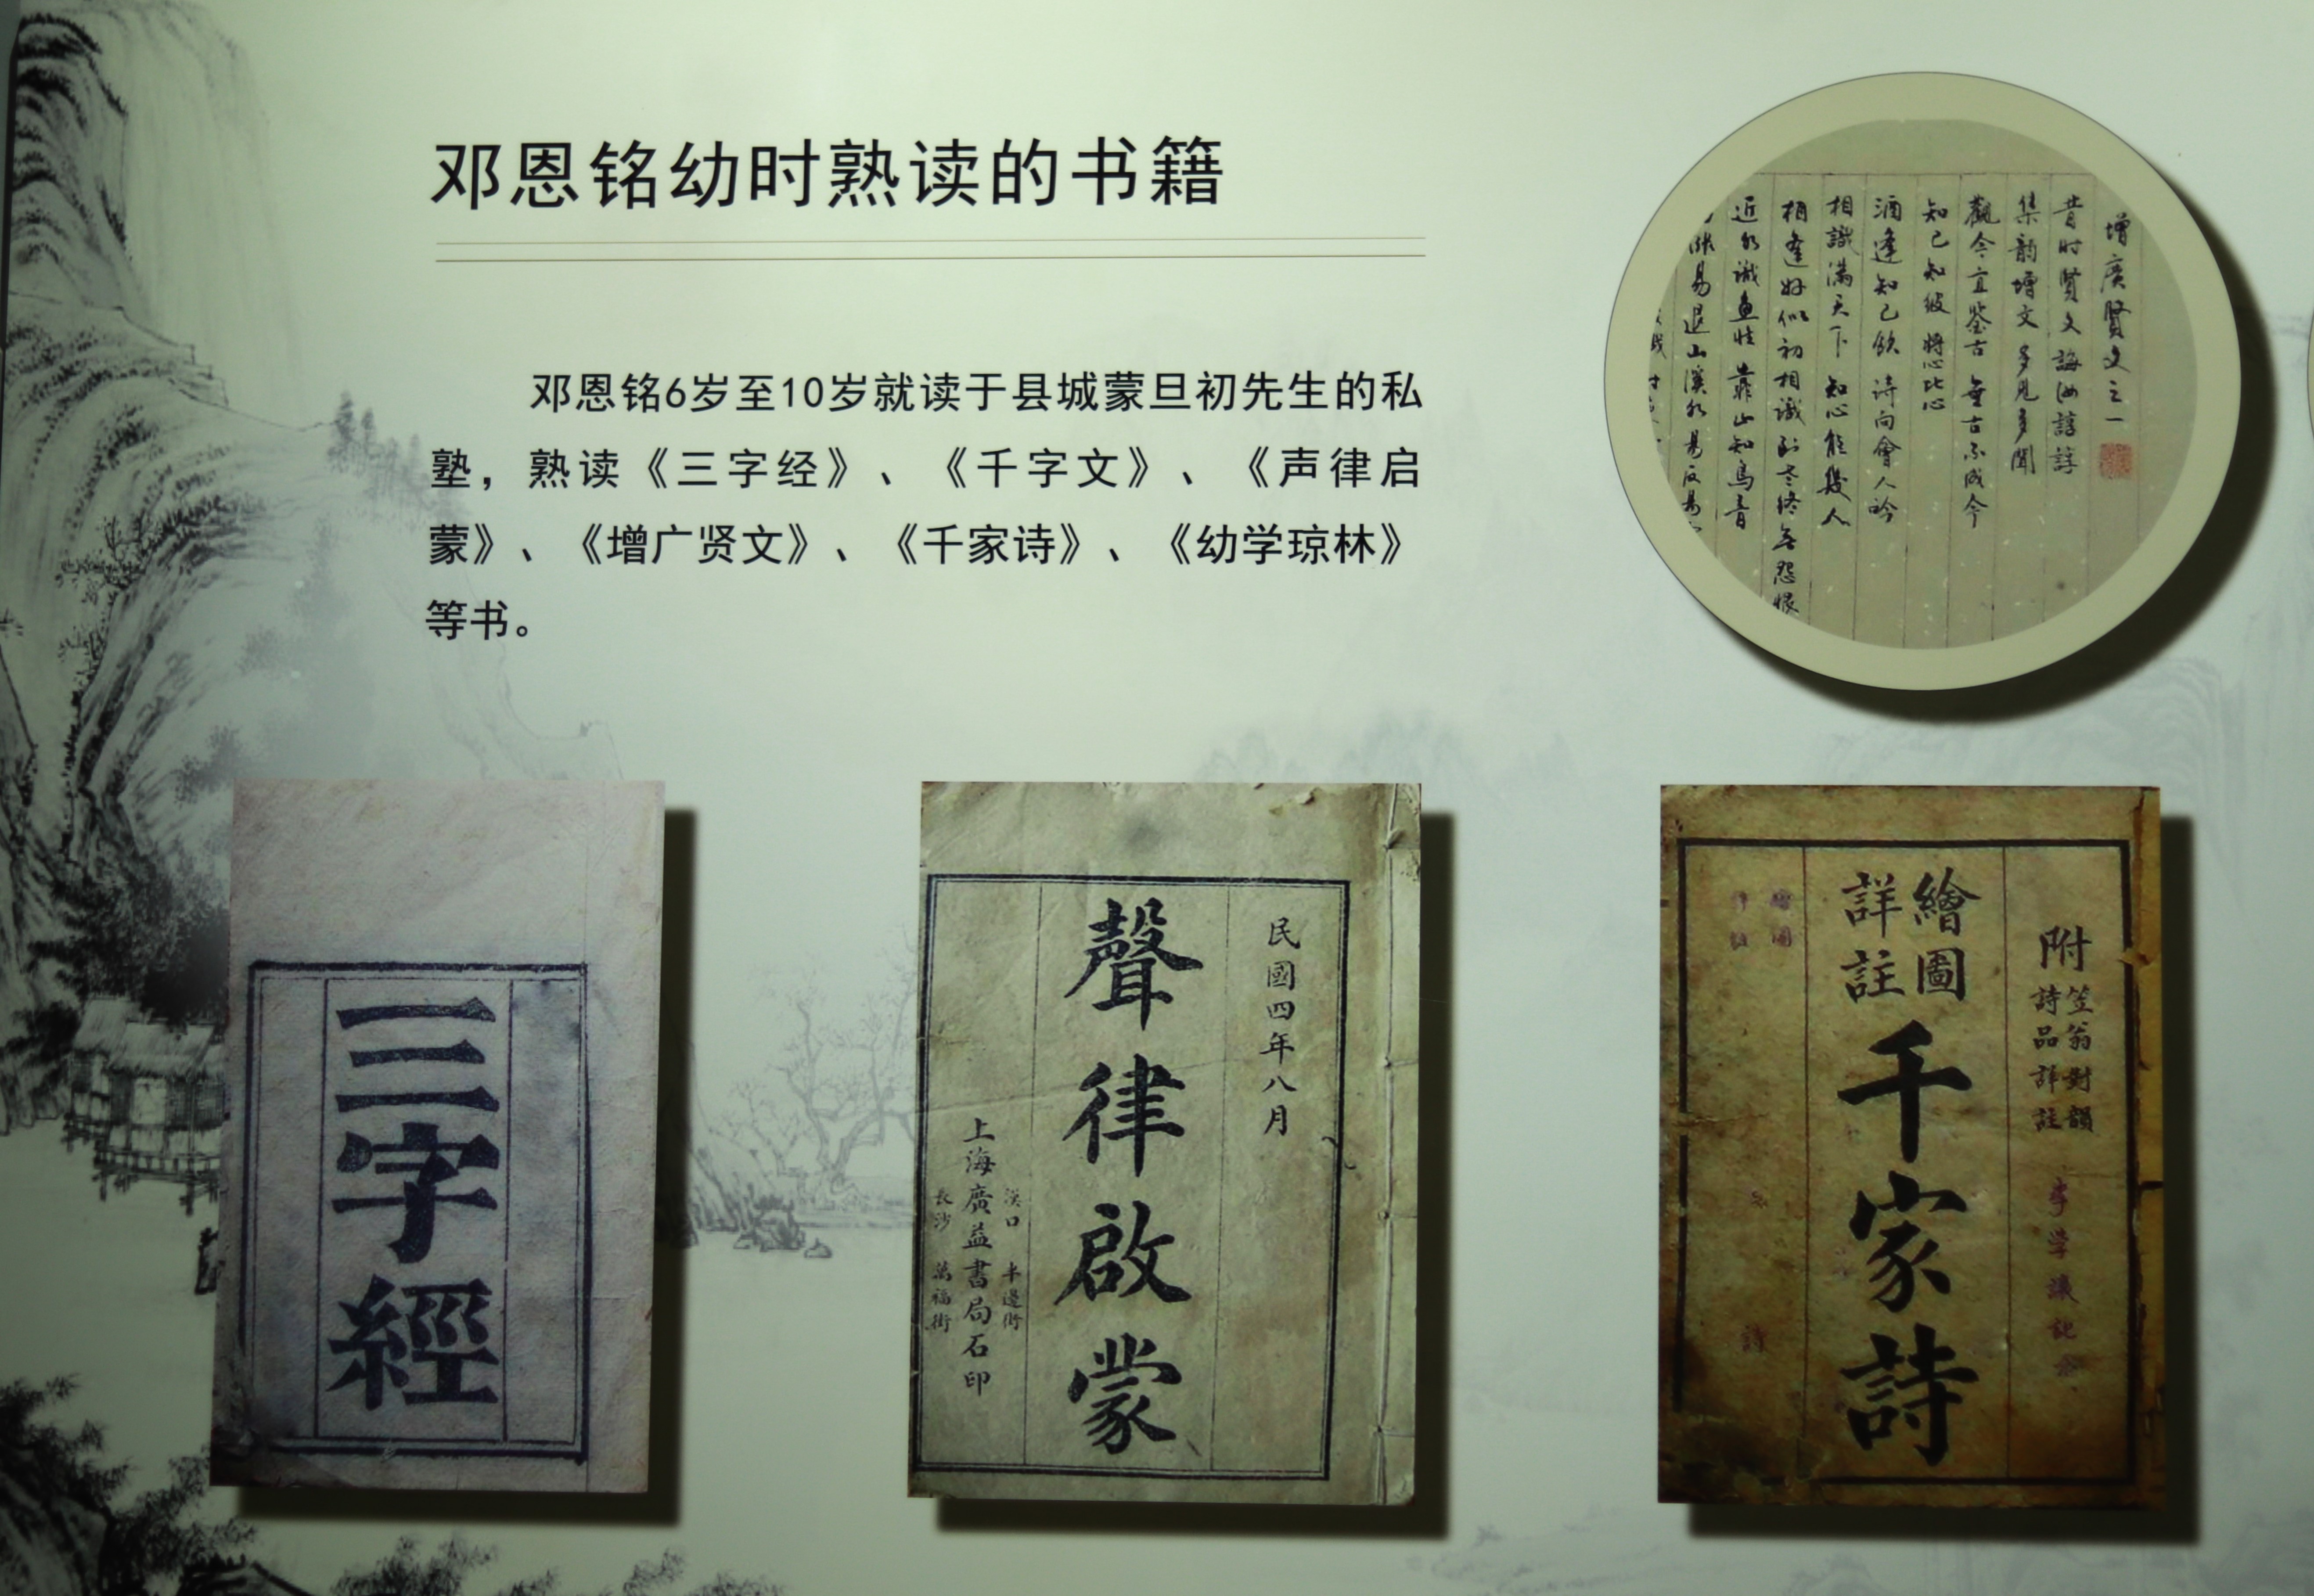 邓恩铭幼时熟读的书籍
邓恩铭6岁至10岁就读于县城蒙旦初先生的私
塾，熟读《三字经》、《千字文》、《声律启
蒙》、《增广贤文》、《千家诗》、《幼学琼林》
等书。
增廣賢文之一
昔时賢文 誨汝諄諄
集韵增文 多见多聞
觀今宜鉴古 無古不成今
知己知彼 將心比心
酒逢知己飲 诗向會人吟
相識滿天下 知心能幾人
相逢好似初相識 到老終無怨恨
近水識鱼性 靠山知鳥音
易退山溪水易反易
三字經
民國四年八月
聲律啟蒙
漢口 半邊街
上海廣益書局石印
長沙 萬福街
附
笠翁對韻
詩品詳註
繪圖
詳註
千家詩